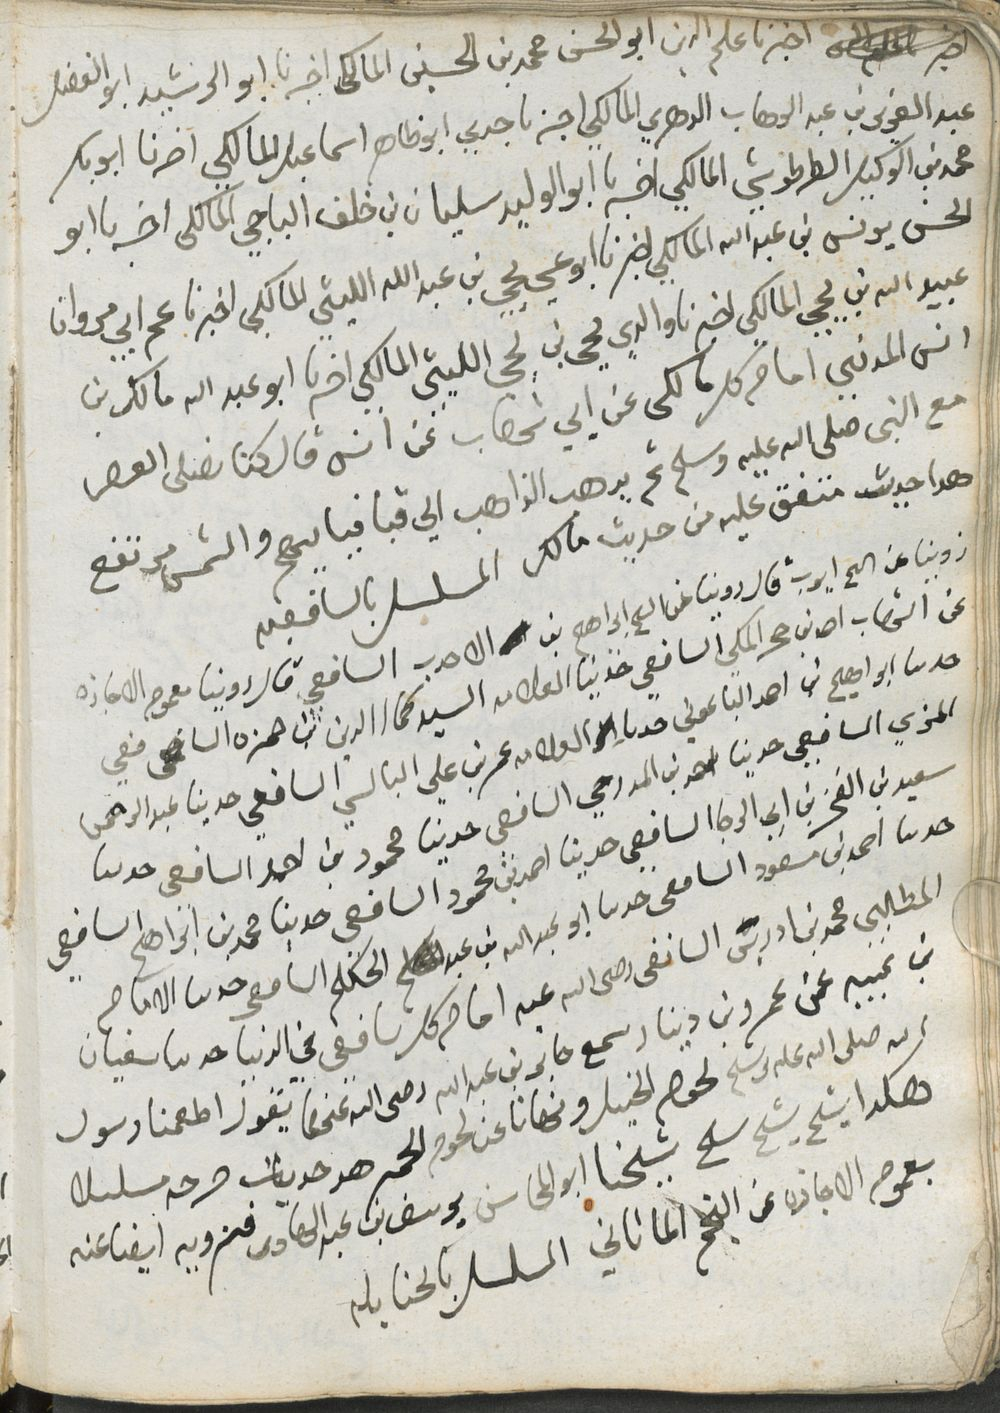 اخبرنا علم الدين ابو الحسن محمد بن الحسين المالكي اخبرنا ابو الرشيد ابو الفضل
عبد العزيز بن عبد الوهاب الزهري المالكي اخبرنا جدي ابو طاهر اسماعيل المالكي اخبرنا ابو بكر
محمد بن الوليد الطرطوشي المالكي اخبرنا ابو الوليد سليمان بن خلف الباجي المالكي اخبرنا ابو
الحسن يونس بن عبد الله المالكي اخبرنا ابو عيسى يحيى بن عبد الله الليثي المالكي اخبرنا عم ابي مروان
عبيد الله بن يحيى المالكي اخبرنا والدي يحيى بن يحيى الليثي المالكي اخبرنا ابو عبد الله مالك بن
انس المدني امام كل مالكي عن ابن شهاب عن انس قال كنا نصلي العصر
مع النبي صلى الله عليه وسلم ثم يذهب الذاهب الي قبا فياتيهم والشمس مرتفع
هذا حديث متفق عليه من حديث مالك المسلسل بالشافعيه
روينا عن ايوب قال روينا عن ابراهيم بن الاحدب الشافعي قال روينا بعموم الاجازه
عن الشهاب احمد بن حجر المكي الشافعي حدثنا العلامه السيد كمال الدين بن حمزه الشافعي
حدثنا ابراهيم بن احمد الباعوني حدثنا العلامه عمر بن علي البالسي الشافعي حدثنا عبد الرحمن
المزي الشافعي حدثنا احمد بن الشافعي حدثنا محمود بن احمد الشافعي حدثنا
سعيد بن الفخر بن ابي الرجا الشافعي حدثنا احمد بن محمود الشافعي حدثنا محمد بن ابراهيم الشافعي
حدثنا احمد بن مسعود الشافعي حدثنا ابو عبد الله بن عبد الحكم الشافعي حدثنا الامام
المطلبي محمد بن ادريس الشافعي رضي الله عنه امام كل شافعي في الدنيا حدثنا سفيان
بن عيينه عن عمرو بن دينار سمع جابر بن عبد الله رضي الله عنهما يقول اطعمنا رسول
الله صلى الله عليه وسلم لحوم الخيل ونهانا عن لحوم الحمر هذا حديث خرجه مسلسلا
هكذا شيخ شيخ شيخنا ابو المحاسن يوسف بن عبد الهادي فنرويه ايضا عنه
بعموم الاجازه عن النجم الماتاني المسلسل بالحنابله